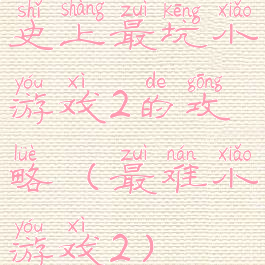 shǐ shàng zuì kēng xiǎo
史上最坑小
yóu xì de gōng
游戏2的攻
lüè zuì nán xiǎo
略（最难小
yóu xì
游戏2）